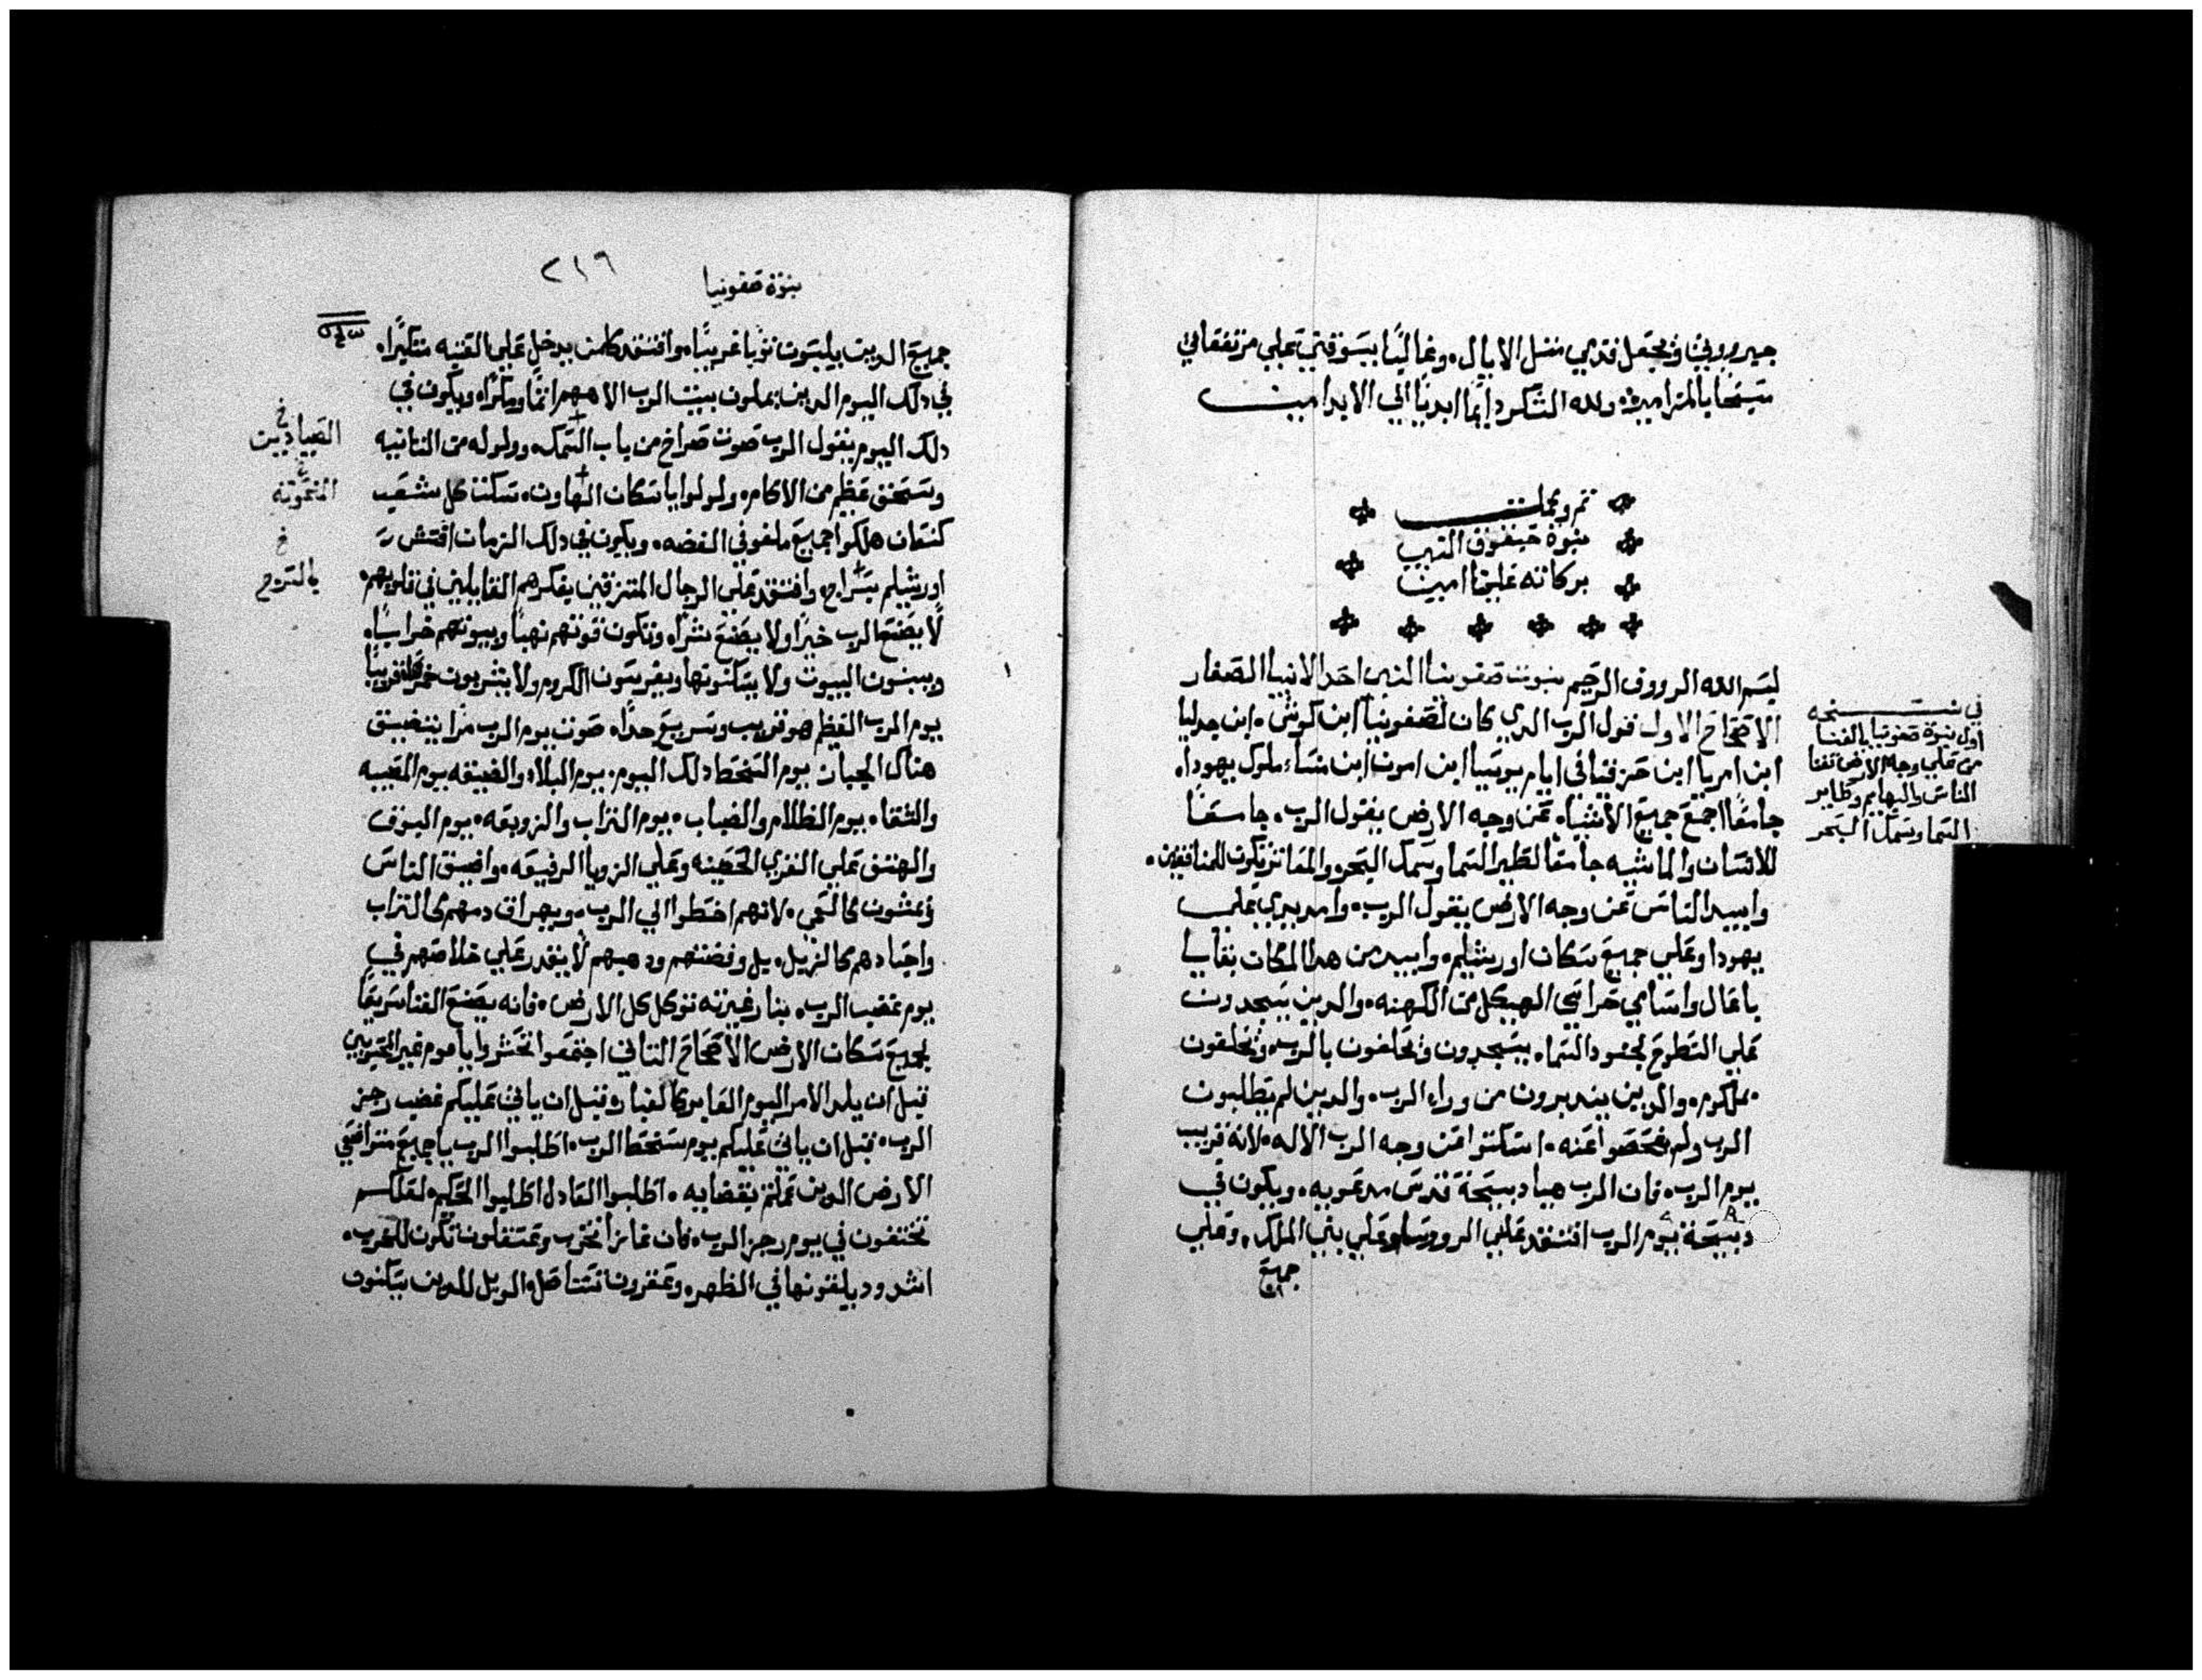 جبروتي ويجعل قدمي مثل الايال. وغالبًا يسوقني علي مرتفعاتي
مسبحًا بالمزامير. ولله الشكر دايمًا ابديًا الي الابد امين
تم وكملت
نبوة حبقوق النبي
بركاته علينا امين
بسم الله الرووف الرحيم نبوت صفونيا النبي احد الانبيا الصغار
الاصحاح الاول قول الرب الدي كان لصفونيا ابن كوشي. ابن جدليا
ابن امريا ابن حزقيا في ايام يوشيا ابن امون ابن منسا. ملوك يهودا.
جامعًا اجمع جميع الأشياء عن وجه الارض يقول الرب. جامعًا
للانسان والماشيه جامعًا لطير السما وسمك البحر والمعاثر تكون للمنافقين.
وابيد الناس عن وجه الارض يقول الرب. وامد يدي علي
يهودا وعلي جميع سكان اورشليم. وابيد من هدا المكان بقايا
باعال واسامي حراسي الهيكل من الكهنه. والدين يسجدون
علي السطوح لجنود السماء. ويسجدون ويحلفون بالرب. ويحلفون
بملكوم. والدين يتدبرون من وراء الرب. والدين لم يطلبون
الرب ولم يفحصوا عنه. اسكتوا عن وجه الرب الاله. لانه قريب
يوم الرب. فان الرب هيا دبيحة قدس مدعويه. ويكون في
دبيحة يوم الرب افتقد علي الروسا وعلي بني الملك. وعلي
جميع
في نسخه
اول نبوة صفونيا بالفنا
من علي وجه الارض تفنا
الناس والبهايم وطاير
السما وسمك البحر
نبوة صفونيا
٢١٦
جميع الدين يلبسون ثوبا غريبًا. وافتقد كلمن يدخل علي العتبه متكبرًا.
في دلك اليوم الدين يملون بيت الرب الاههم اثمًا ومكرًا. ويكون في
دلك اليوم يقول الرب صوت صراخ من باب السمك. وولوله من الثانيه
وسحق عظيم من الاكام. ولولوا يا سكان الهاون. سكت كل شعب
كنعان هلكوا جميع ملفوفي الفضه. ويكون في دلك الزمان افتش
اورشليم بسراج. وافتقد علي الرجال المتزقين بفكرهم القايلين في قلوبهم.
لا يصنع الرب خيرًا ولا يصنع شرًا. وتكون قوتهم نهبًا وبيوتهم خرابًا.
ويبنون البيوت ولا يسكنونها ويغرسون الكروم ولا يشربون خمرها قريبًا
يوم الرب العظيم هو قريب وسريع جدًا. صوت يوم الرب مرًا يتضيق
هناك الجبان يوم السخط دلك اليوم. يوم البلاء والضيقه يوم المصيبه
والشقاء يوم الظلام والضباب. يوم التراب والزوبعه. يوم البوق
والهتق علي القري الحصينه وعلي الزوايا الرفيعه. واضيق الناس
ويمشون كالعمي. لانهم اخطوا الي الرب. ويهراق دمهم كالتراب
واجسادهم كالزبل. بل وفضتهم ودهبهم لا يقدر علي خلاصهم في
يوم غضب الرب. بنار غيرته توكل كل الارض. فانه يصنع الفنا سريعًا
لجميع سكان الارض الاصحاح الثاني اجتمعوا انحشروا يا قوم غير المحبوبين
قبل ان يلد الامر اليوم العابر كالغبار. وقبل ان ياتي عليكم غضب رجز
الرب. قبل ان ياتي عليكم يوم سخط الرب. اطلبوا الرب يا جميع متواضعي
الارض الدين عملتم بقضايه. اطلبوا العادل اطلبوا الحكم. لعلكم
تختفون في يوم رجز الرب. فان غازا تخرب وعسقلون تكون للخرب.
اشدود يلقونها في الظهر. وعقرون تستاصل. الويل للدين يسكنون
خ
الصيادين
خ
المنحوته
خ
بالسرج